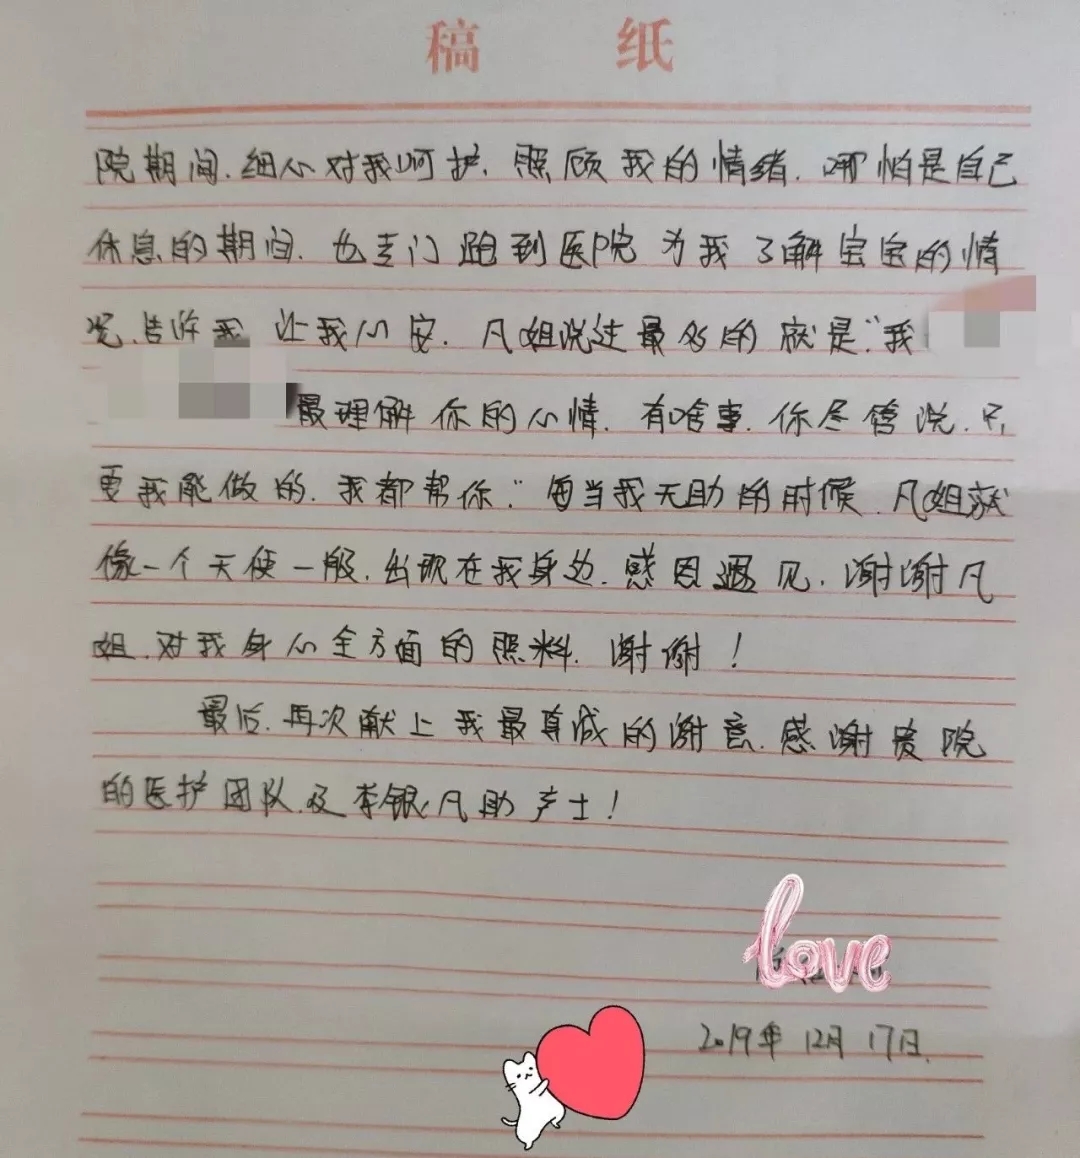 稿 纸
院期间.细心对我呵护.照顾我的情绪.哪怕是自己
休息的期间.也专门跑到医院为我了解宝宝的情
况.告诉我 让我心安.凡姐说过最多的就是“我
最理解你的心情.有啥事.你尽管说.只
要我能做的.我都帮你.”每当我无助的时候.凡姐就
像一个天使一般.出现在我身边.感恩遇见.谢谢凡
姐.对我身心全方面的照料.谢谢!
最后.再次献上我最真诚的谢意.感谢贵院
的医护团队及李银凡助产士!
love
2019年12月17日.